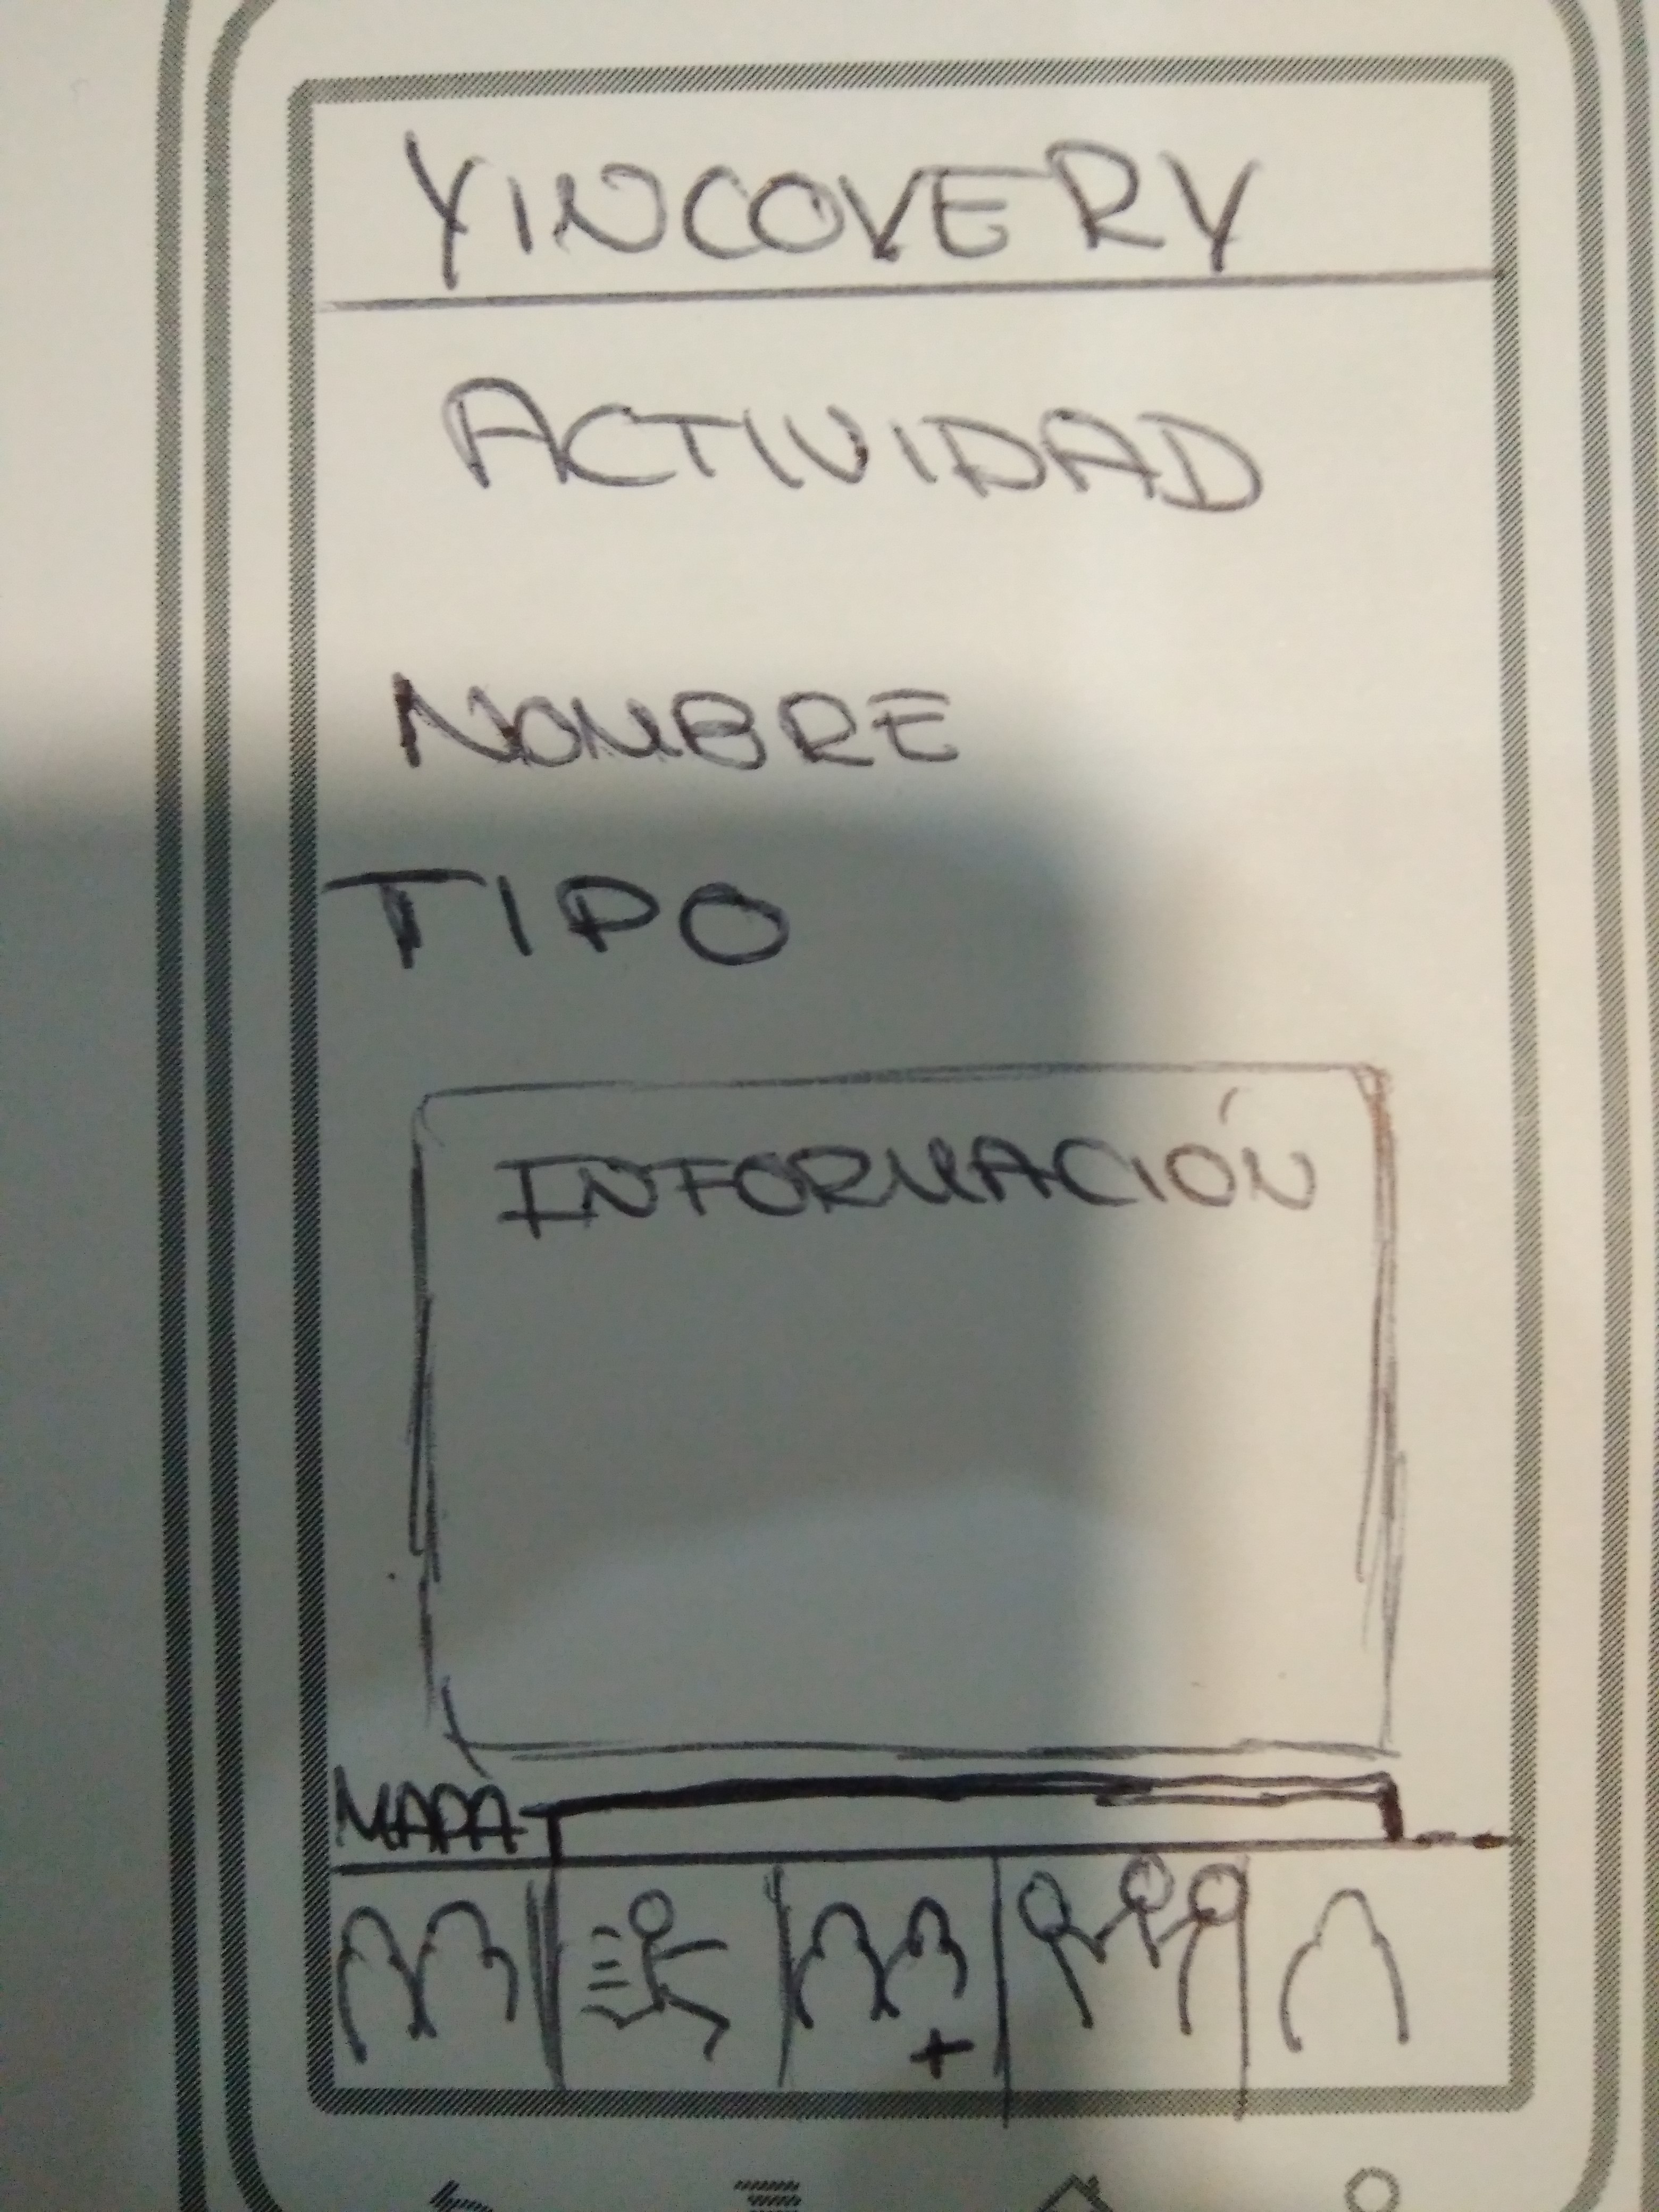 YINCOVERY
ACTIVIDAD
NOMBRE
TIPO
INFORMACIÓN
MAPA
+